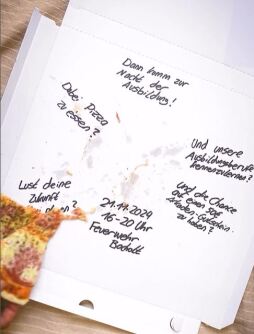 Dann komm zur
Nacht der
Ausbildung!
Dabei Pizza
zu essen?
Und unsere
Ausbildungsberufe
kennenzulernen?
Lust deine
Zukunft
zu planen?
Und die Chance
auf einen 20€
Gutschein
zu haben?
21.11.2024
16-20 Uhr
Feuerwehr
Bocholt